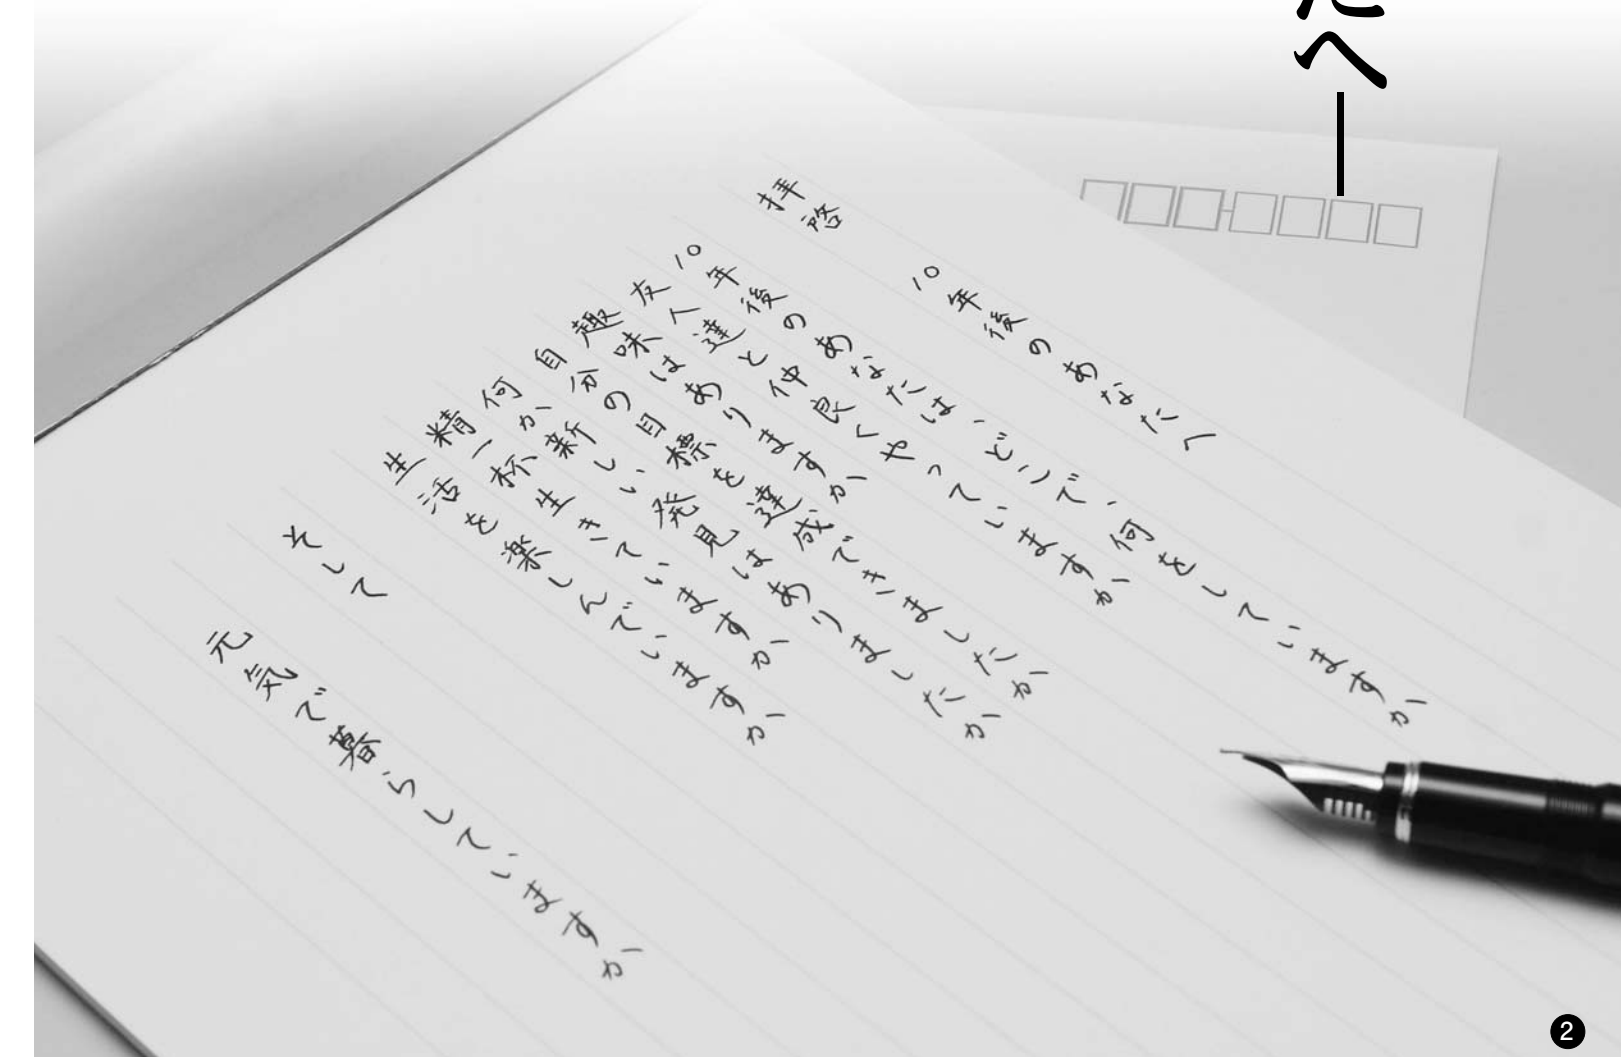 たへ―
拝啓 10年後のあなたへ
10年後のあなたは、どこで、何をしていますか
友人達と仲良くやっていますか
趣味はありますか
自分の目標を達成できましたか
何か新しい発見はありましたか
精一杯生きていますか
生活を楽しんでいますか
そして
元気で暮らしていますか
2